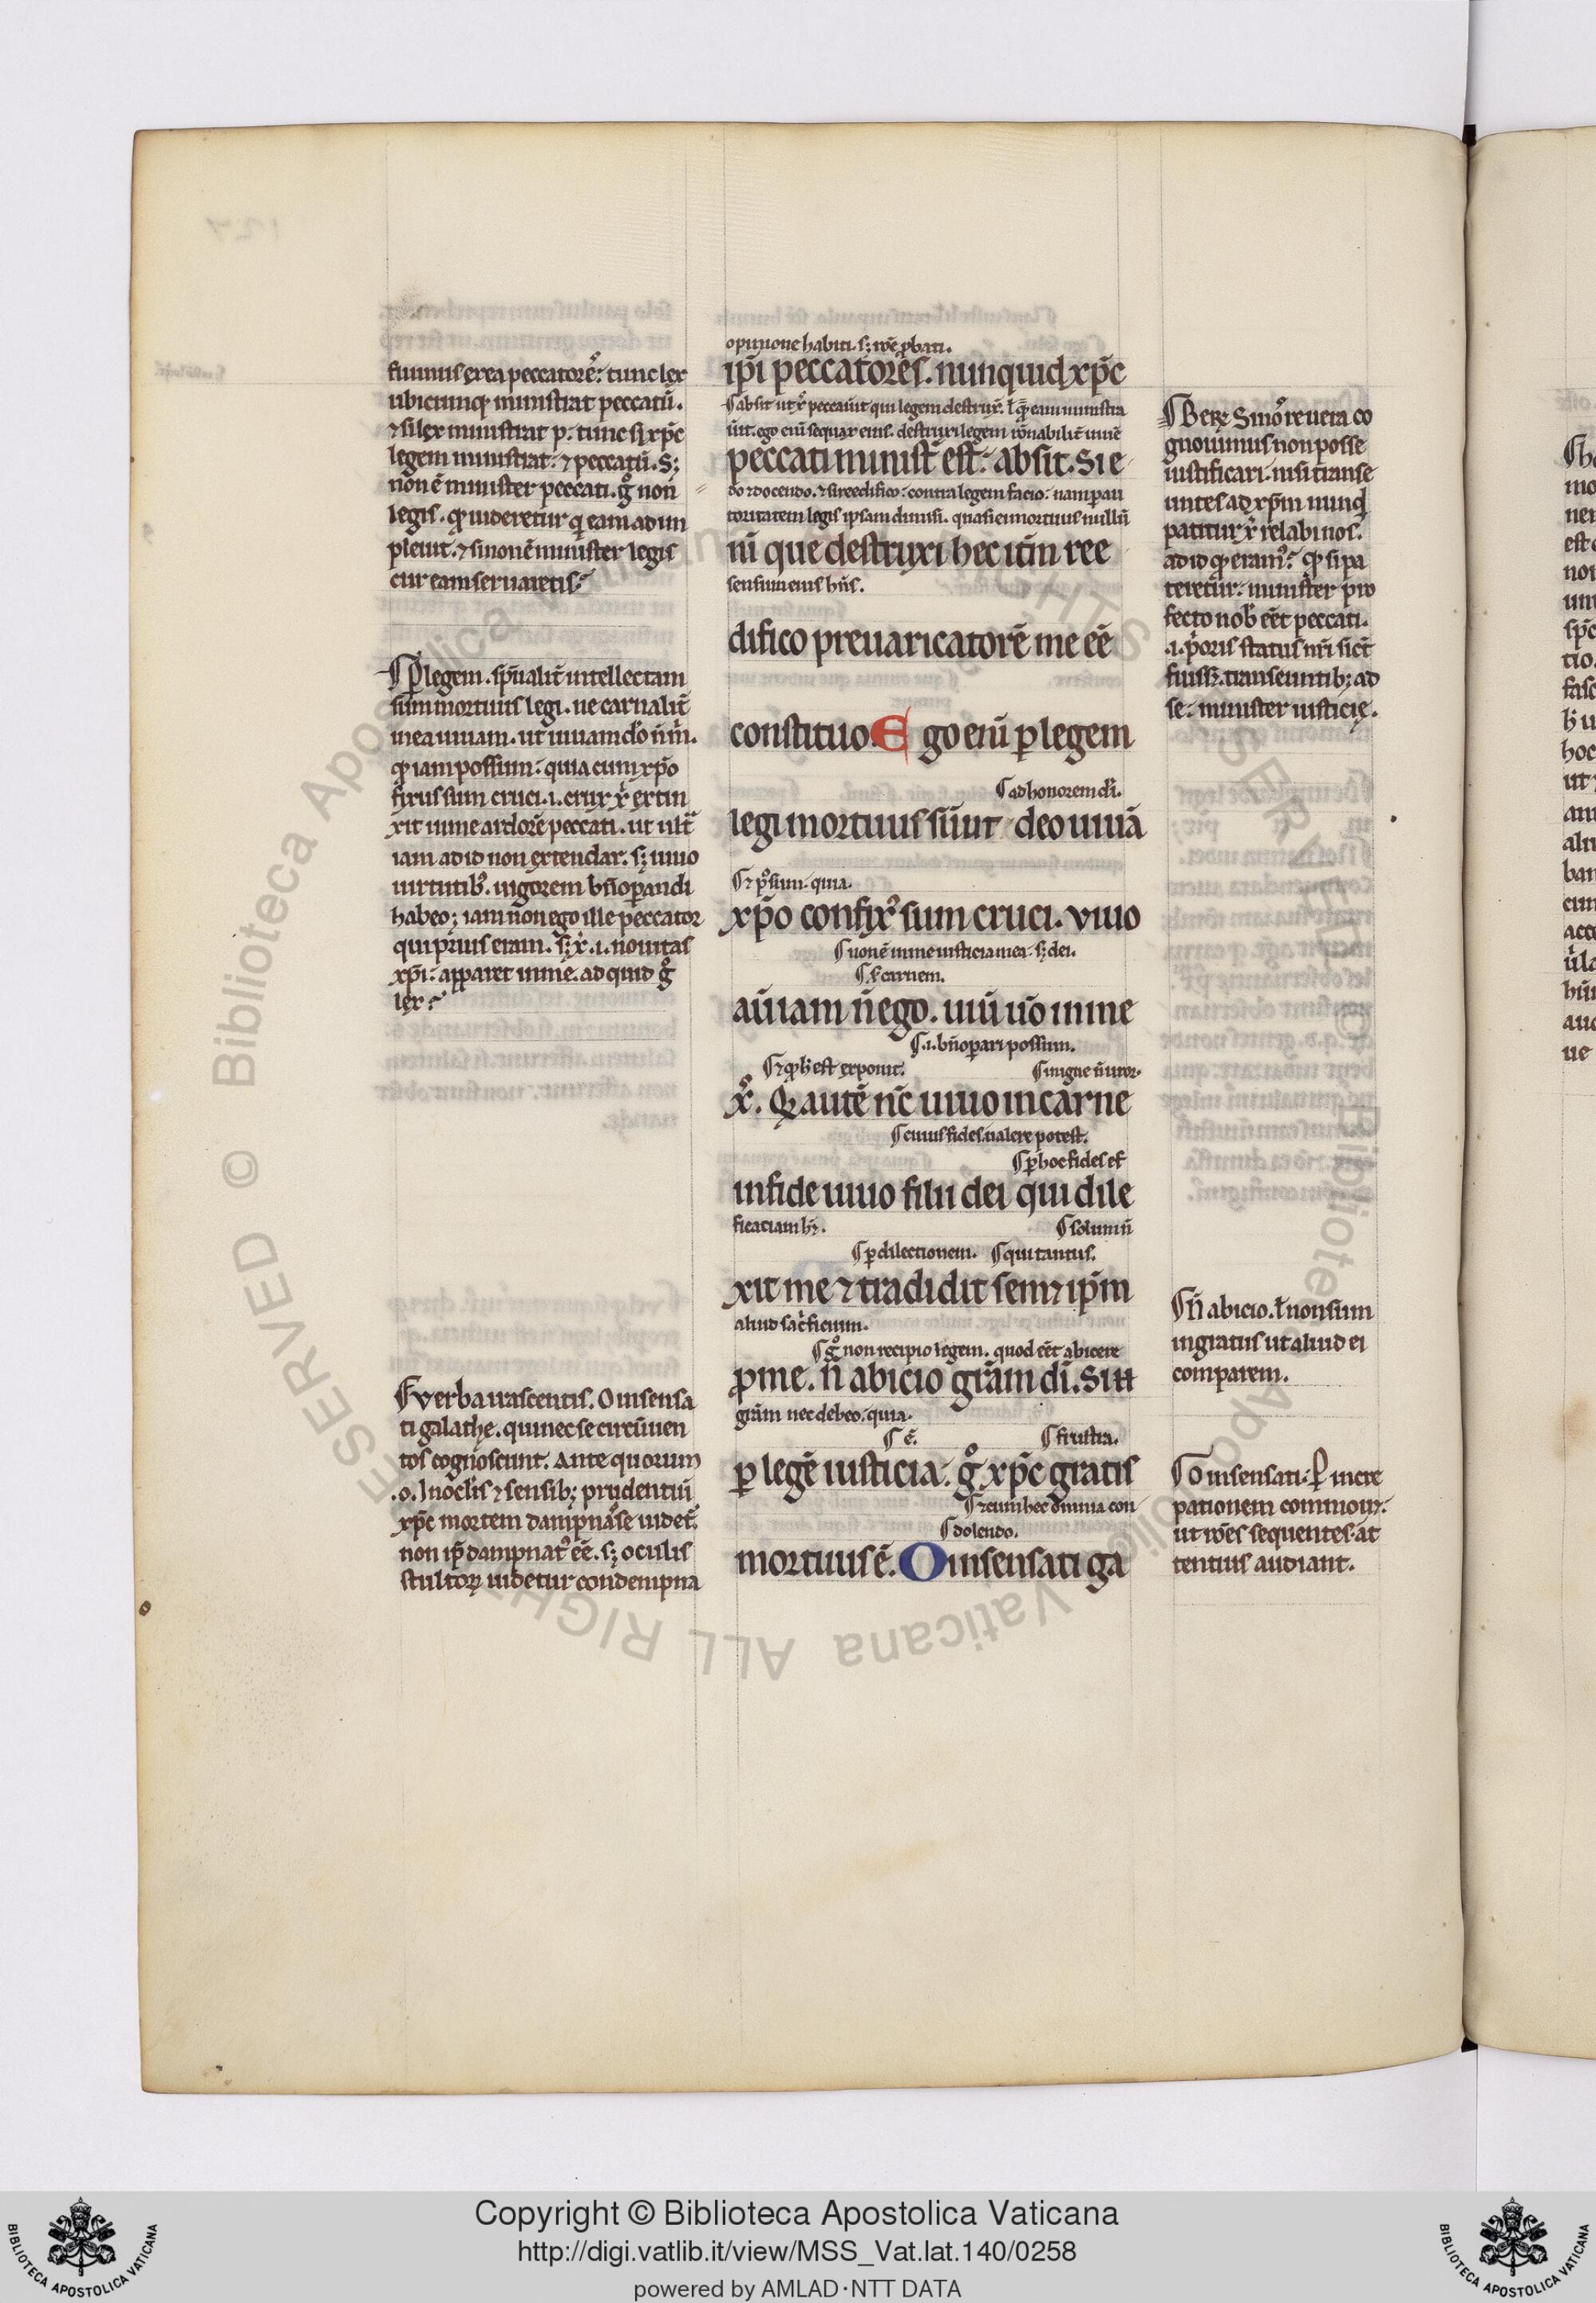 fuimus ex ea peccatores: tunc lex
ubicumq; ministrat peccatū.
⁊ si lex ministrat p̄. tunc si xp̄c
legem ministrat: ⁊ peccatū. S;
non ē minister peccati. gͦ non
legis. qđ uideretur qͥ eam adim
pleuit. ⁊ si non ē minister legis
cur eam seruaretis?
¶ Ꝑ legem. sp̄ualit̄ intellectam
sum mortuus legi. ne carnalit̄
in ea uiuam. ut uiuam dō
qđ iam possum: quia cum xp̄o
fixus sum cruci. i. crux xͥ extin
xit in me ardorē peccati. ut ultͣ
iam ad id non extendar. s; uiuo
uirtutib;. uigorem bn̄ oꝑandi
habeo; iam non ego ille peccator
qui prius eram. s; xͨ. i. nouitas
xp̄i: apparet in me. ad quid gͦ
lex?
¶ Verba nascentis. O insensa
ti galathe. qui nec se circūuen
tos cognoscunt. Ante quorum
.o. In oc̄lis ⁊ sensib; prudentiū
xp̄c mortem dampnasse uidet͛.
non ip̄e dampnatꝰ eē. s; oculis
stultoꝝ uidetur condempna
opinione habiti. s; uē ꝓbati.
ip̄i peccatores. nunquid xp̄c
¶ absit ut xͨ peccauit qui legem destrux̄. ł qđ eam ministra
uit. ego enī sequax eius. destruxi legem in me
peccati minist̄ est: absit. Si e
do ⁊ docendo. ⁊ si reedifico: contra legem facio: nam ꝑ au
toritatem legis ipsam dimisi. quasi ei mortuus nullū
nī que destruxi hec itm̄ ree
sensum eius hn̄s.
difico preuaricatorē me eē
constituo. Ego enī ꝑ legem
¶ ad honorem di.
legi mortuus sū ut deo uiuā
¶ ⁊ pͦsum. quia.
xp̄o confixꝰ sum cruci. Viuo
¶ non ē in me iusticia mea. s; dei.
¶ s. carnem.
aū iam n̄ ego. uiū uō in me
¶ .i. bn̄ oꝑari possum.
¶ ⁊ qđ h̄ est exponit. ¶ in igne n̄ uror.
xͨ. Qđ autē nc̄ uiuo in carne
¶ cuius fides ualere potest.
¶ ꝑ hoc fides ef
in fide uiuo filii dei qui dile
ficaciam h;. ¶ solum n̄
¶ ꝑ dilectionem. ¶ qui tantus.
xit me ⁊ tradidit semetip̄m
aliud sacͥficium.
¶ gͦ non recipio legem. quod eēt abicere
ꝓ me. n̄ abicio grām di. Si n̄
grām nec debeo. quia.
¶ ē. ¶ frustra.
ꝑ legē iusticia: gͦ xp̄c gratis
¶ ⁊ cum hec omnia con
¶ dolendo.
mortuus ē. O insensati ga
¶ Ber̄. Si in oͦ reuera co
gnouimus non posse
iustificari. nisi transe
untes ad xp̄m nunq͛
patitur xͨ relabi nos.
ad id qđ eramꝰ. qđ si pa
teretur: minister pro
fecto nob̄ eēt peccati.
.i. pͥoris status nr̄i sic̄
fuiss;. transeuntib; ad
se: minister iusticie.
¶ n̄ abicio. ł non sum
ingratus ut aliud ei
comparem.
¶ O insensati. ꝑ incre
pationem commouet:
ut oēs sequentes at
tentius audiant.
Copyright © Biblioteca Apostolica Vaticana
http://digi.vatlib.it/view/MSS_Vat.lat.140/0258
powered by AMLAD·NTT DATA